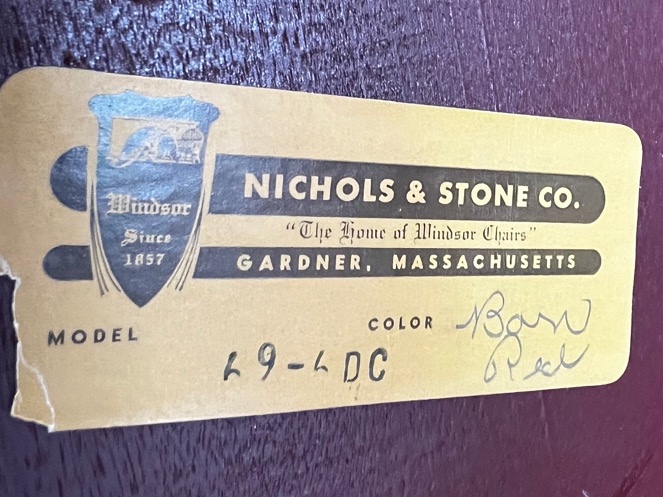 Windsor
Since
1857
NICHOLS & STONE CO.
"The Home of Windsor Chairs"
GARDNER, MASSACHUSETTS
MODEL
COLOR Barn
Red
DC